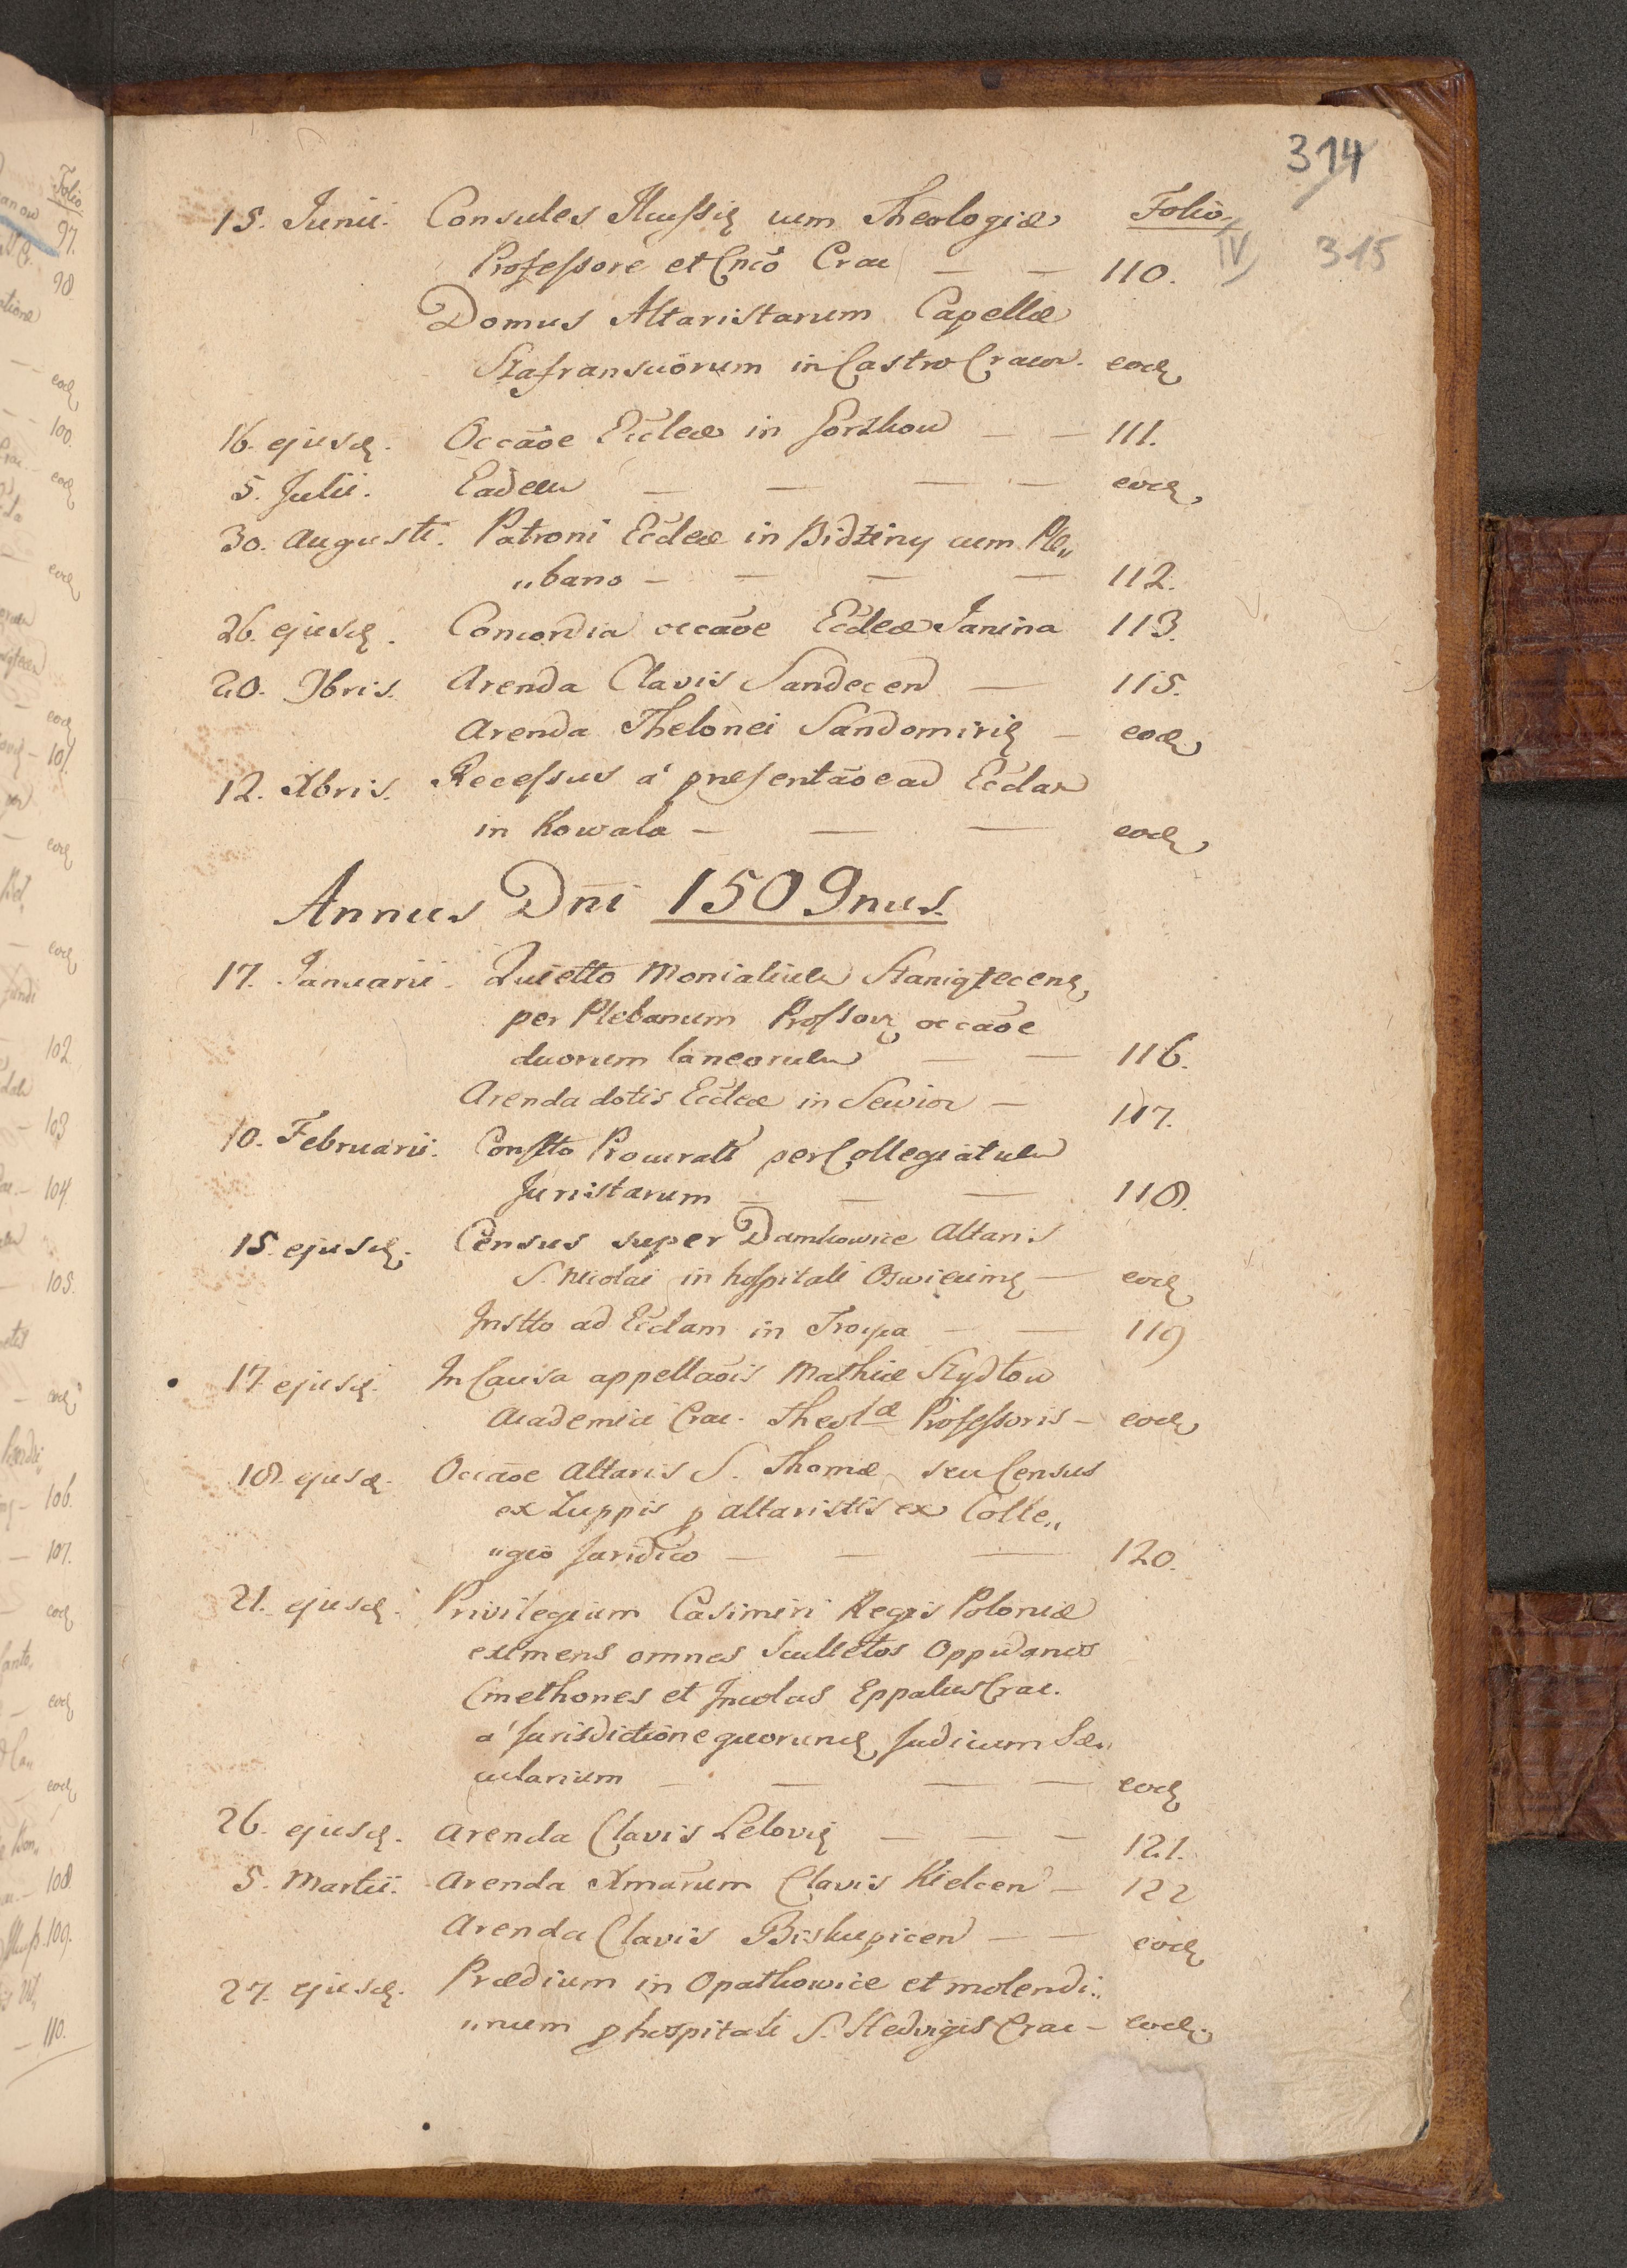 314
Folio
IV 315
15. Junii. Consules Ilcussię cum Theologiæ
Professore et Cnco Crac — — 110.
Domus Altaristarum Capellæ
Szafransciorum in Castro Cracov. eod
16. ejusd. Occaoe Eccleæ in Gorzkow — — 111.
5. Julii. Eadem — — — — eod
30. Augusti. Patroni Eccleæ in Bidziny cum Ple„
„bano — — — — 112.
26. ejusd. Concordia occaoe Eccleæ Janina 113.
20. 9bris. Arenda Clavis Sandecen — 115.
Arenda Thelonei Sandomirię — eod
12. Xbris. Recessus a' presentaoe ad Ecclam
in Kowala — — — eod
Annus Dni 1509nus.
17. Januarii. Quietto Monialium Staniątecens,
per Plebanum Prossov occaoe
duorum laneorum — — 116.
Arenda dotis Eccleæ in Sevior — 117.
10. Februarii. Constto Procurati per Collegiatum
Juristarum — — — 118.
15. ejusd. Census super Damkowice Altaris
S. Nicolai in hospitali Oswiecimę — eod
Instto ad Ecclam in Tropia — — 119
17 ejusd. In Causa appellaois Mathiæ Szydłow
Academiæ Crac. Theolæ Professoris — eod
18. ejusd. Occaoe Altaris S. Thomæ seu Census
ex Zuppis p altaristis ex Colle„
„gio Juridico — — — 120.
21. ejusd. Privilegium Casimiri Regis Poloniæ
eximens omnes Scultetos Oppidanos
Cmethones et Incolas Eppatus Crac.
a' Jurisdictione quorund Judicum Sæ„
cularium — — — — eod
26. ejusd. Arenda Clavis Lelovię — — — 121.
5. Martii. Arenda Xmarum Clavis Kielcen — 122
Arenda Clavis Biskupicen — — eod
27. ejusd. Prædium in Opatkowice et molendi„
„num p hospitali S. Hedvigis Crac — eod.